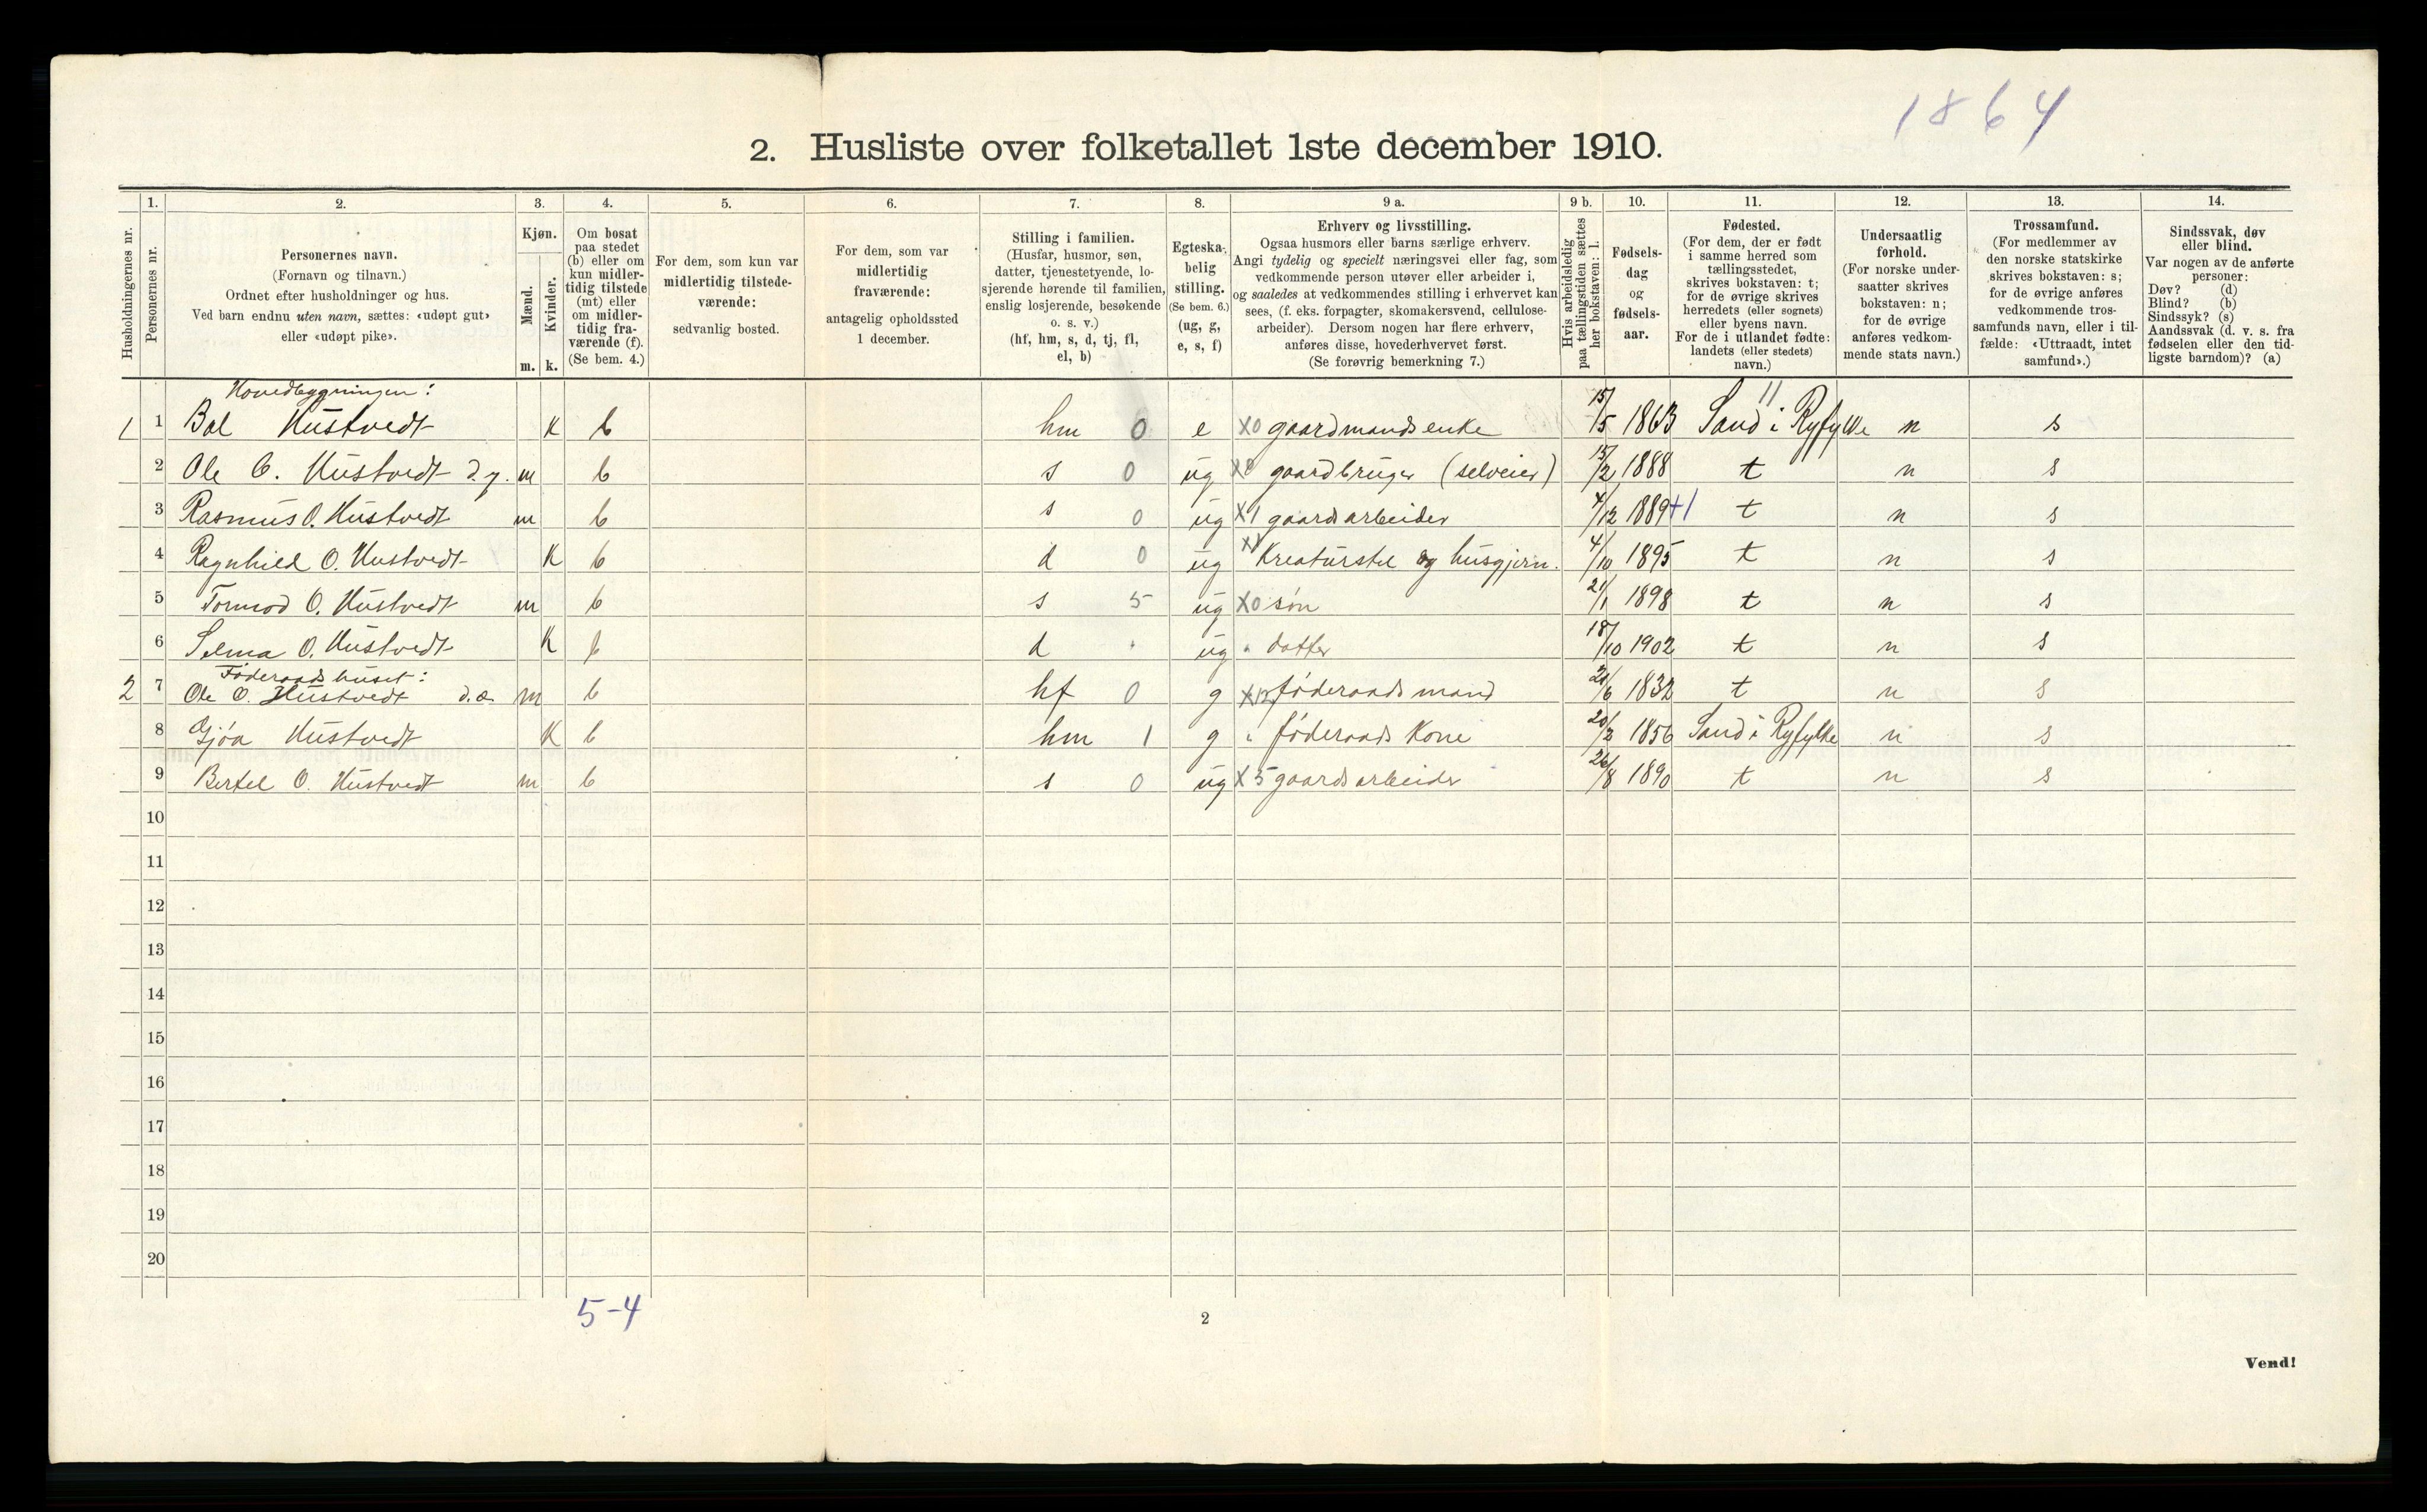 1864
2. Husliste over folketallet 1ste december 1910.
Husholdningernes nr.
1.
Personernes nr.
2.
Personernes navn.
(Fornavn og tilnavn.)
Ordnet efter husholdninger og hus.
Ved barn endnu uten navn, sættes: «udøpt gut»
eller «udøpt pike».
3.
Kjøn.
Mænd.
Kvinder.
m. k.
4.
Om bosat
paa stedet
(b) eller om
kun midler-
tidig tilstede
(mt) eller
om midler-
tidig fra-
værende (f).
(Se bem. 4.)
5.
For dem, som kun var
midlertidig tilstede-
værende:
sedvanlig bosted.
6.
For dem, som var
midlertidig
fraværende:
antagelig opholdssted
1 december.
7.
Stilling i familien.
(Husfar, husmor, søn,
datter, tjenestetyende, lo-
sjerende hørende til familien,
enslig losjerende, besøkende
o. s. v.)
(hf, hm, s, d, tj, fl,
el, b)
8.
Egteska-
belig
stilling.
(Se bem. 6.)
(ug, g,
e, s, f)
9 a.
Erhverv og livsstilling.
Ogsaa husmors eller barns særlige erhverv.
Angi tydelig og specielt næringsvei eller fag, som
vedkommende person utøver eller arbeider i,
og saaledes at vedkommendes stilling i erhvervet kan
sees, (f. eks. forpagter, skomakersvend, cellulose-
arbeider). Dersom nogen har flere erhverv,
anføres disse, hovederhvervet først.
(Se forøvrig bemerkning 7.)
9 b.
Hvis arbeidsledig
paa tællingstiden sættes
her bokstaven: l.
10.
Fødsels-
dag
og
fødsels-
aar.
11.
Fødested.
(For dem, der er født
i samme herred som
tællingsstedet,
skrives bokstaven: t;
for de øvrige skrives
herredets (eller sognets)
eller byens navn.
For de i utlandet fødte:
landets (eller stedets)
navn.)
12.
Undersaatlig
forhold.
(For norske under-
saatter skrives
bokstaven: n;
for de øvrige
anføres vedkom-
mende stats navn.)
13.
Trossamfund.
(For medlemmer av
den norske statskirke
skrives bokstaven: s;
for de øvrige anføres
vedkommende tros-
samfunds navn, eller i til-
fælde: «Uttraadt, intet
samfund».)
14.
Sindssvak, døv
eller blind.
Var nogen av de anførte
personer:
Døv? (d)
Blind? (b)
Sindssyk? (s)
Aandssvak (d. v. s. fra
fødselen eller den tid-
ligste barndom)? (a)
Hovedbygningen: 11
1 1 Bol Hustvedt K b hm 0 e x0 gaardmandsenke 15/5 1863 Sand i Ryfylke n s
2 Ole O. Hustvedt d.y. m b s 0 ug gaardbruger (selveier) 15/2 1888 t n s
3 Rasmus O. Hustvedt m b s 0 ug x1 gaardsarbeider 4/12 1889 +1 t n s
4 Ragnhild O. Hustvedt K b d 0 ug Kreaturstel og husgjern. 4/10 1895 t n s
5 Tormod O. Hustvedt m b s 5 ug x0 søn 21/1 1898 t n s
6 Selma O. Hustvedt K b d ug datter 18/10 1902 t n s
Føderaadshuset:
2 7 Ole O. Hustvedt d.æ. m b hf 0 g x12 føderaadsmand 21/6 1832 t n s
8 Gjøa Hustvedt K b hm 1 g føderaads Kone 20/2 1856 Sand i Ryfylke n s
9 Bertel O. Hustvedt m b s 0 ug x5 gaardsarbeider 26/8 1890 t n s
10
11
12
13
14
15
16
17
18
19
20
5-4
2
Vend!